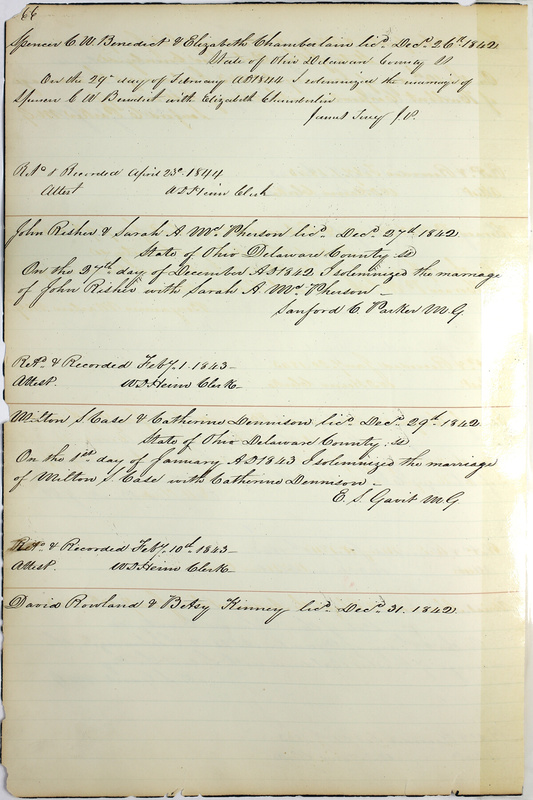 66
Spencer C. W. Benedict & Elizabeth Chamberlain lic'd. Dec'r. 26th 1842
State of Ohio Delaware County SS
On the 29th day of February AD 1844 I solemnized the marriage of
Spencer C W Benedict with Elizabeth Chamberlin
James J.P.
Ret'd & Recorded April 23d 1844
Attest W D Heim Clerk
John Risher & Sarah A. Mc.Pherson lic'd. Dec'r. 27th 1842
State of Ohio Delaware County ss
On the 27th day of December AD 1842 I solemnized the marriage
of John Risher with Sarah A. Mc.Pherson –
Sanford C. Parker M.G
Ret'd. & Recorded Feb'y. 1. 1843 –
Attest. W D Heim Clerk –
Milton S. Case & Catherine Dennison lic'd. Dec'r. 29th 1842
State of Ohio Delaware County: ss
On the 1st day of January AD 1843 I solemnized the marriage
of Milton S. Case with Catherine Dennison –
E. S. Gavit M.G
Ret'd. & Recorded Feb'y. 10th 1843 –
Attest. W D Heim Clerk –
David Rowland & Betsy Kinney lic'd. Dec'r. 31. 1842